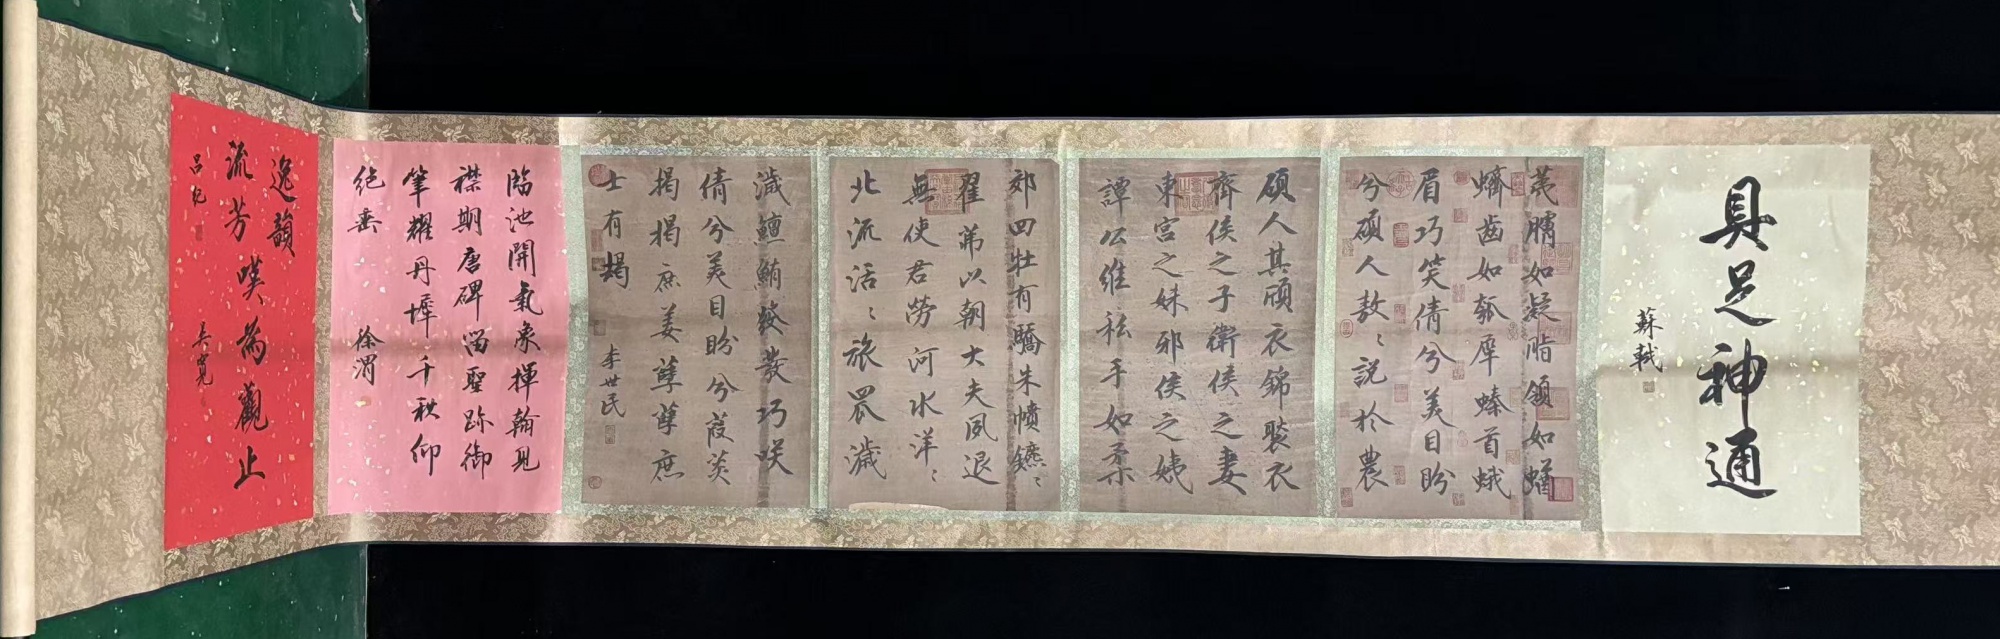 具足神通
蘇軾
荑膚如凝脂領如蝤
蠐齒如瓠犀螓首蛾
眉巧笑倩兮美目盼
兮碩人敖〻說於農
碩人其頎衣錦褧衣
齊侯之子衛侯之妻
東宮之妹邢侯之姨
譚公維私手如柔
郊四牡有驕朱幩鑣〻
翟茀以朝大夫夙退
無使君勞河水洋〻
北流活〻旅罛濊
濊鱣鮪發發巧咲
倩兮美目盼兮葭菼
揭揭庶姜孽孽庶
士有朅
李世民
臨池開氣象揮翰見
襟期唐碑留聖跡御
筆耀丹墀千秋仰
絶垂
徐渭
逸韻
流芳嘆為觀止
呂紀
吳寬